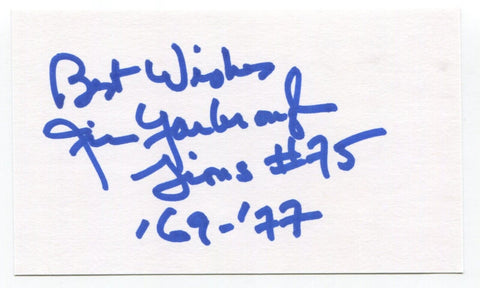 Best Wishes
Jim Yarbrough
Lions #75
'69-'77